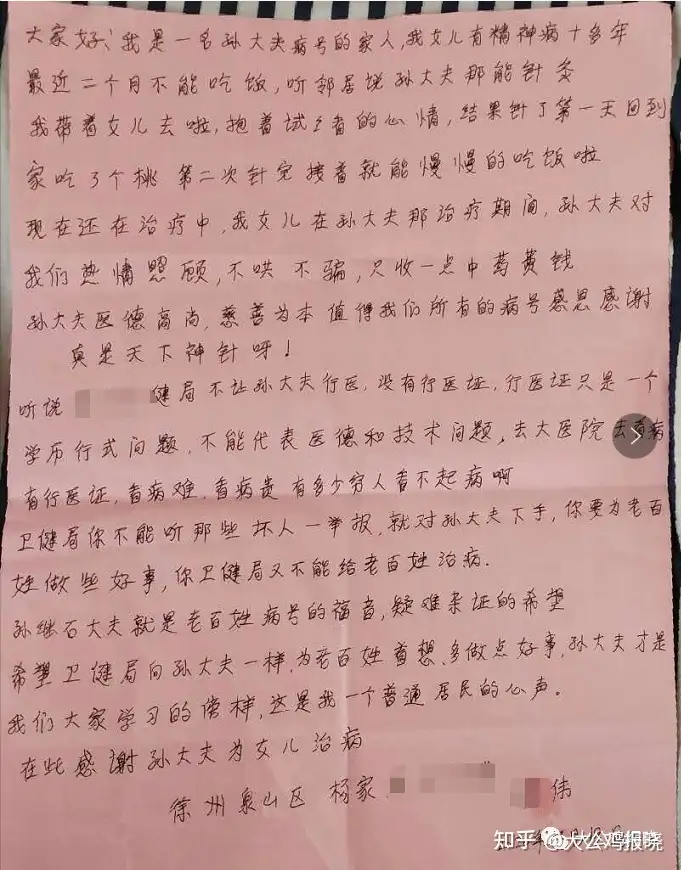 大家好，我是一名孙大夫病号的家人，我女儿有精神病十多年
最近二个月不能吃饭，听邻居说孙大夫那能针灸
我带着女儿去啦，抱着试的心情，结果针了第一天回到
家吃了个桃 第二次针完接着就能慢慢的吃饭啦
现在还在治疗中，我女儿在孙大夫那治疗期间，孙大夫对
我们热情照顾，不哄不骗，只收一点中药费钱
孙大夫医德高尚，慈善为本 值得我们所有的病号感恩感谢
真是天下神针呀！
听说 健局不让孙大夫行医，没有行医证，行医证只是一个
学历行式问题，不能代表医德和技术问题，去大医院去看病
有行医证，看病难，看病贵 有多少穷人看不起病啊
卫健局你不能听那些坏人一举报，就对孙大夫下手，你要为老百
姓做些好事，你卫健局又不能给老百姓治病.
孙继石大夫就是老百姓病号的福音，疑难杂证的希望
希望卫健局向孙大夫一样，为老百姓着想，多做点好事，孙大夫才是
我们大家学习的榜样，这是我一个普通居民的心声。
在此感谢孙大夫为女儿治病
徐州泉山区 杨家 伟
知乎 @大公鸡报晓
大公鸡报晓